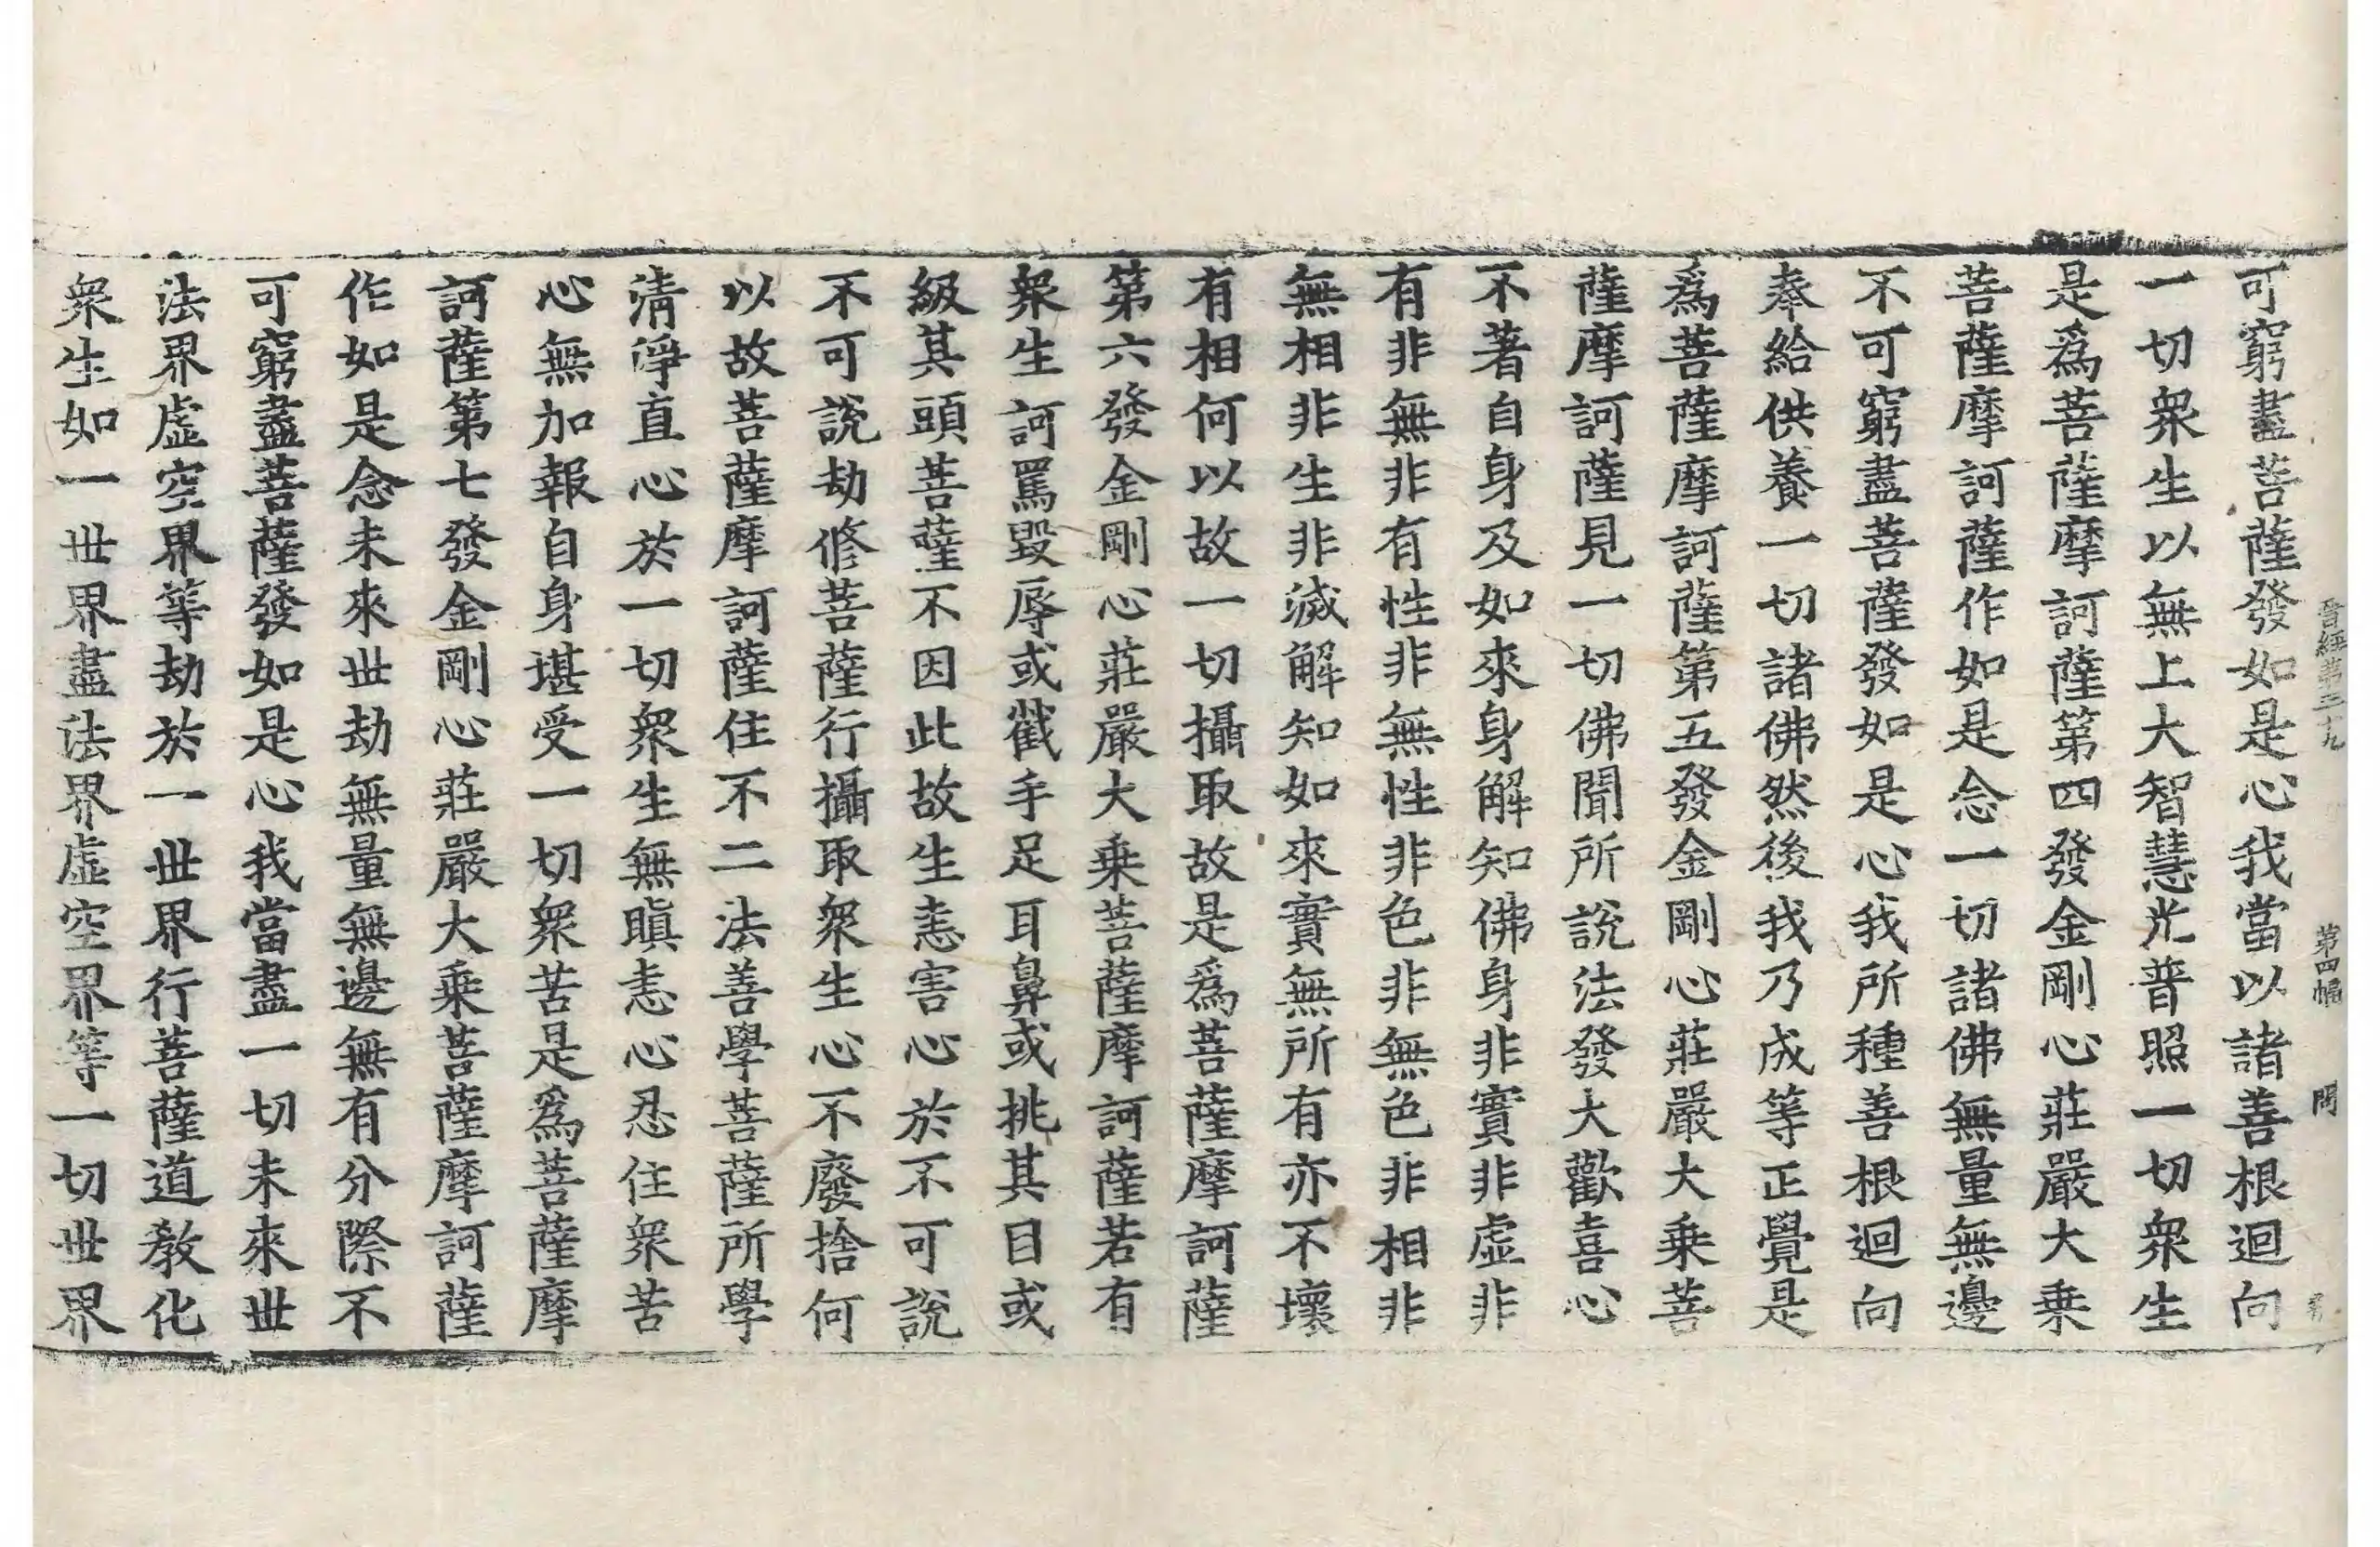 晉經第三十九　第四幅　問
可窮盡菩薩發如是心我當以諸善根迴向
一切衆生以無上大智慧光普照一切衆生
是爲菩薩摩訶薩第四發金剛心莊嚴大乗
菩薩摩訶薩作如是念一切諸佛無量無邊
不可窮盡菩薩發如是心我所種善根迴向
奉給供養一切諸佛然後我乃成等正覺是
爲菩薩摩訶薩第五發金剛心莊嚴大乗菩
薩摩訶薩見一切佛聞所説法發大歡喜心
不著自身及如來身解知佛身非實非虛非
有非無非有性非無性非色非無色非相非
無相非生非滅解知如來實無所有亦不壞
有相何以故一切攝取故是爲菩薩摩訶薩
第六發金剛心莊嚴大乗菩薩摩訶薩若有
衆生訶罵毀辱或截手足耳鼻或挑其目或
級其頭菩薩不因此故生恚害心於不可説
不可説劫修菩薩行攝取衆生心不廢捨何
以故菩薩摩訶薩住不二法善學菩薩所學
清淨直心於一切衆生無瞋恚心忍住衆苦
心無加報自身堪受一切衆苦是爲菩薩摩
訶薩第七發金剛心莊嚴大乗菩薩摩訶薩
作如是念未來世劫無量無邊無有分際不
可窮盡菩薩發如是心我當盡一切未來世
法界虛空界等劫於一世界行菩薩道教化
衆生如一世界盡法界虛空界等一切世界